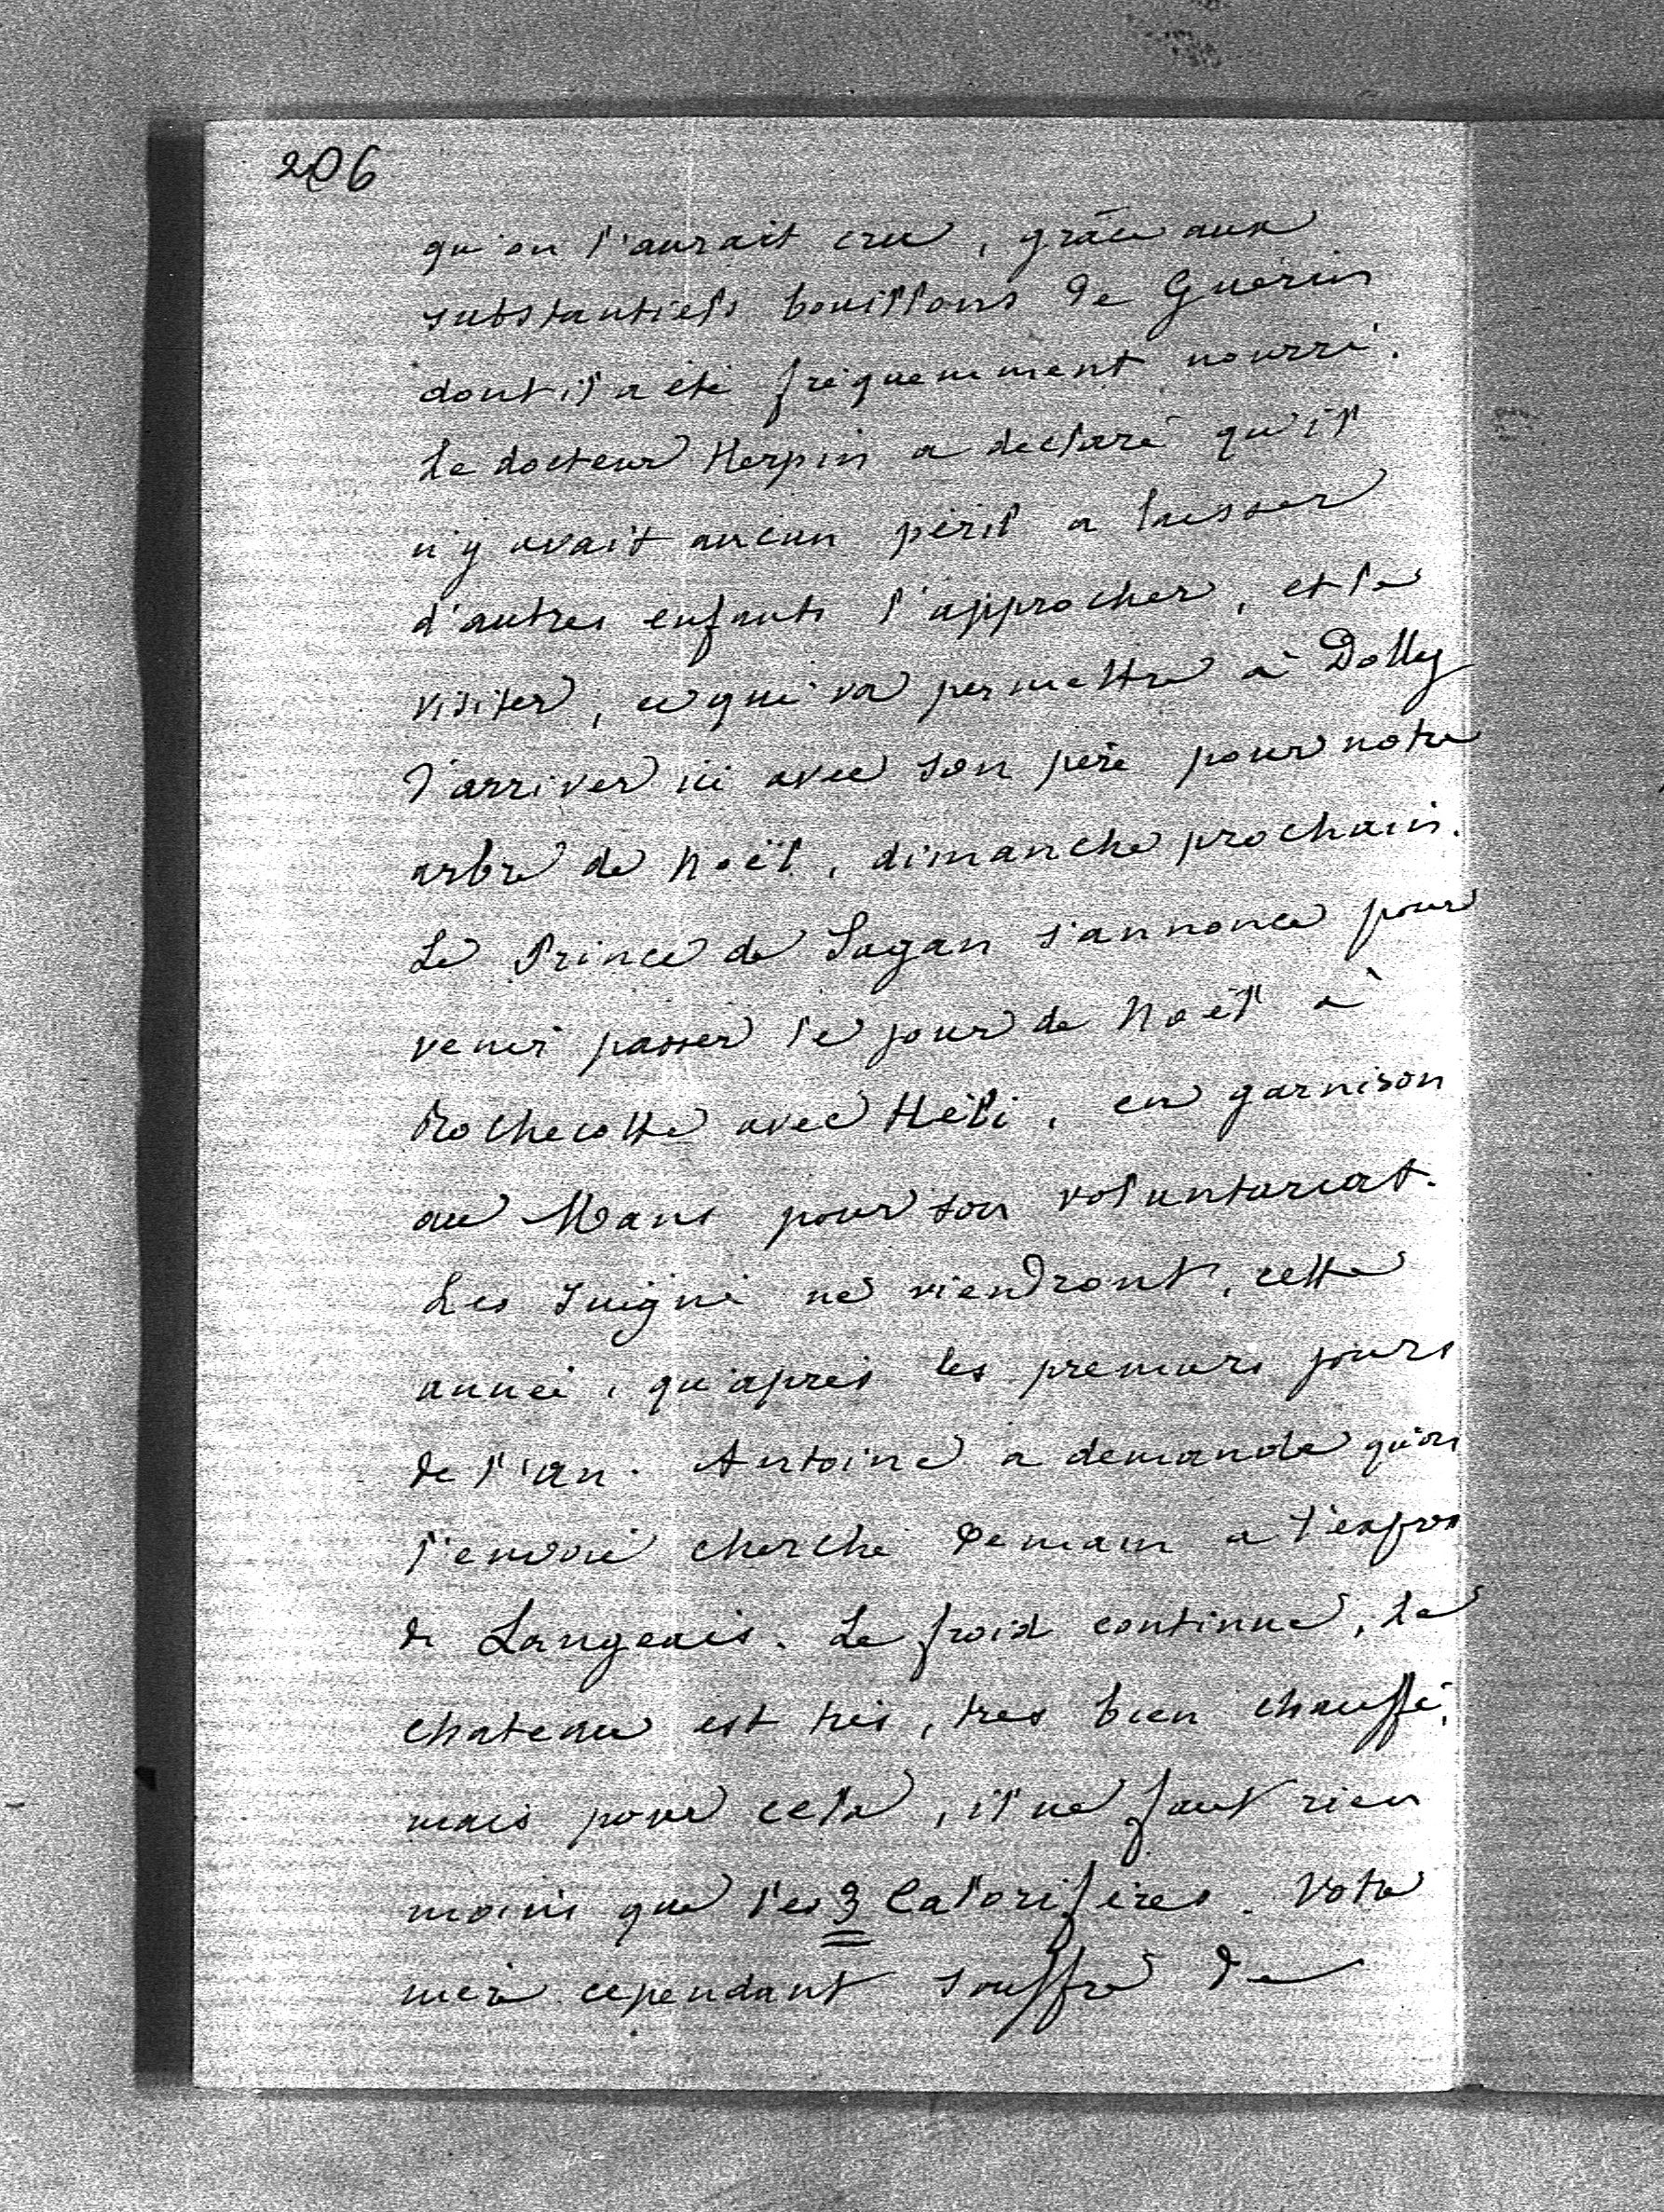 206
qu'on l'aurait cru, grâce aux
substantiels bouillons de Guérin
dont il a été fréquemment nourri.
Le docteur Herpin a declaré qu'il
n'y avait aucun péril a laisser
d'autres enfants l'approcher, et le
visiter, ce qui va permettre à Dolly
d'arriver ici avec son père pour notre
arbre de Noël, dimanche prochain.
Le Prince de Sagan s'annonce pour
venir passer le jour de Noël à
Rochecotte avec Héli, en garnison
au Mans pour son voluntariat.
Les Juigné ne viendront, cette
année, qu'après les premiers jours
de l'an. Antoine a demandé qu'on
l'envoie cherché demain a l'express
de Langeais. Le froid continue, le
chateau est très, tres bien chauffé,
mais pour cela, il ne faut rien
moins que les 3 Calorifères. Votre
mère cependant souffre de